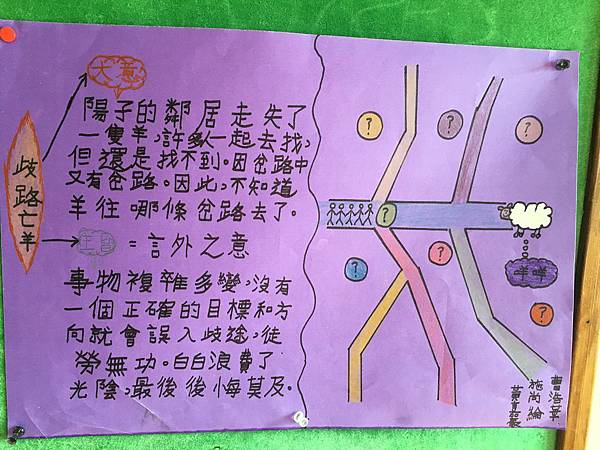 歧路亡羊
大意
陽子的鄰居走失了
一隻羊,許多人一起去找,
但還是找不到。因岔路中
又有岔路。因此,不知道
羊往哪條岔路去了。
主旨=言外之意
事物複雜多變,沒有
一個正確的目標和方
向就會誤入歧途,徒
勞無功。白白浪費了
光陰,最後後悔莫及。
?
?
?
?
?
?
?
咩咩
曹浩華
施尚綸